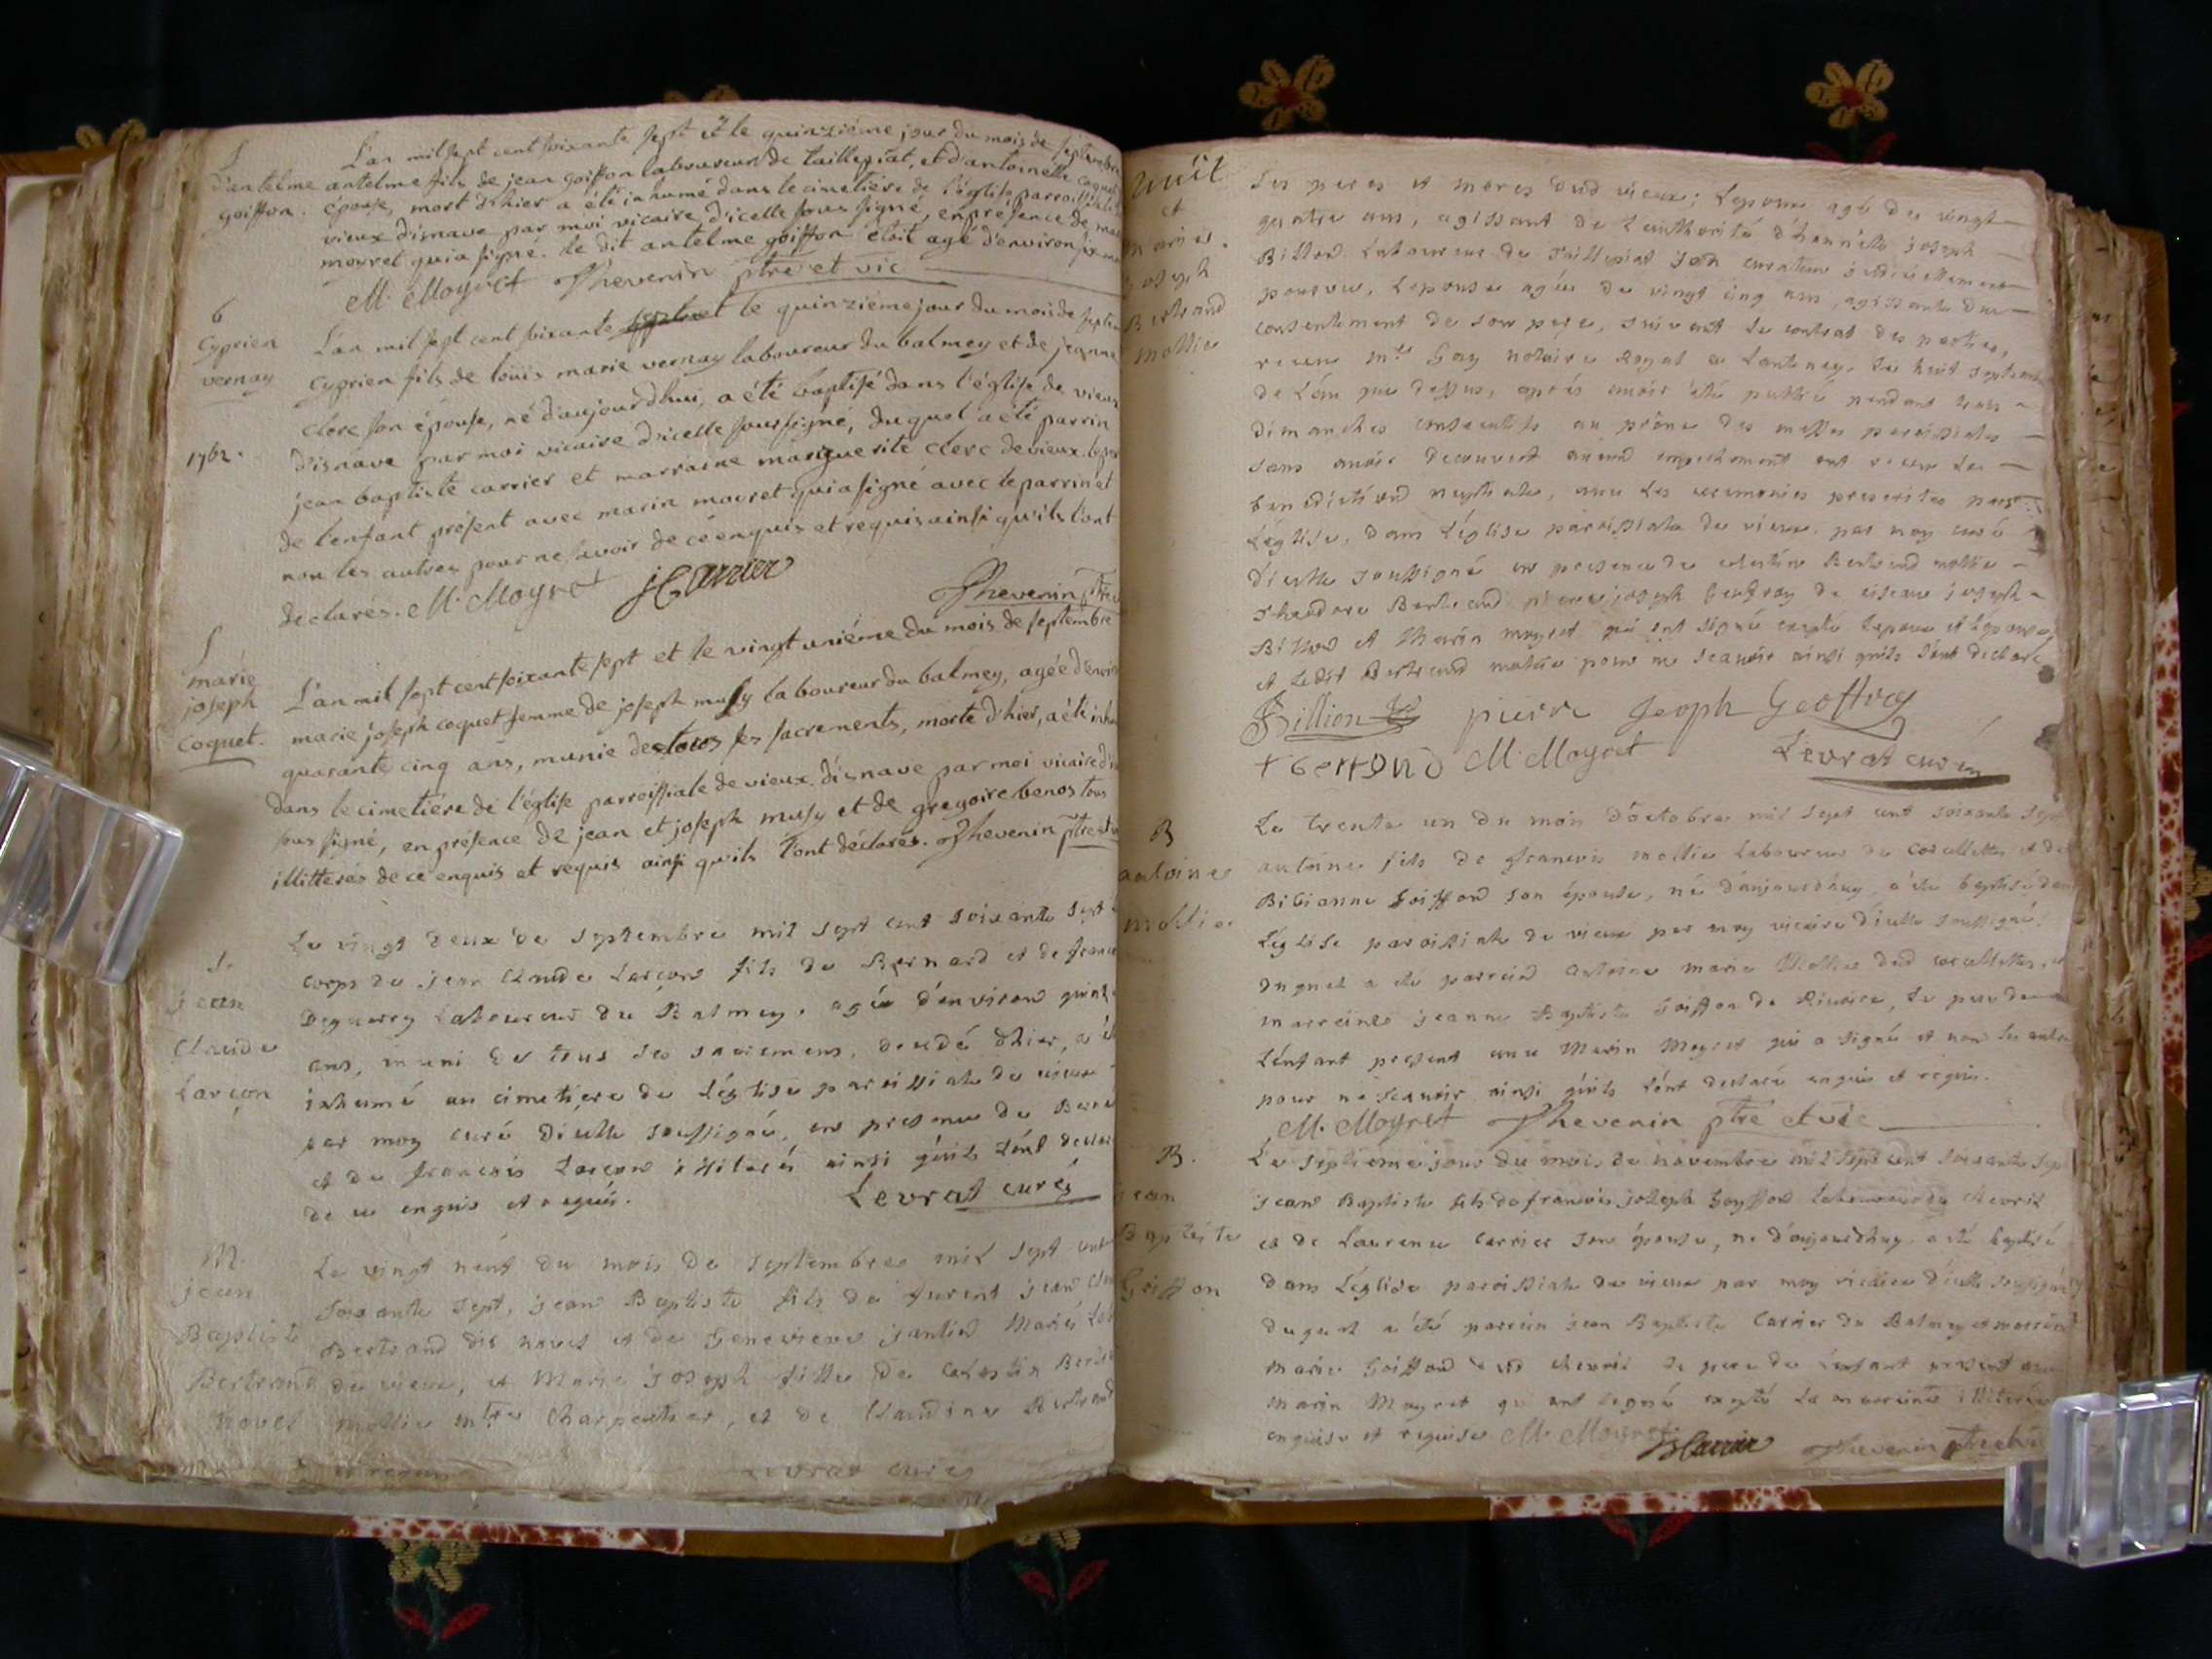 S
d'antelme
goiffon.
L'an mil sept cent soixante sept et le quinziéme jour du mois de septembre
antelme fils de jean goiffon laboureur de taillepiat, et d'antoinette coquet
épouse, mort d'hier a été inhumé dans le cimetière de l'église parroissiale
vieux d'isnave par moi vicaire d'icelle sous signé, en présence de
moyret qui a signé. le dit antelme goiffon étoit agé d'environ six
M. Moyret Thevenin ptre et vic
6
Cyprien
vernay
1762.
L'an mil sept cent soixante et le quinziéme jour du mois de septem
Cyprien fils de loüis marie vernay laboureur du balmey et de jeanne
clerc son épouse, né d'aujourd'hui, a été baptisé dans l'église de vieux
d'isnave par moi vicaire d'icelle sous signé, duquel a été parrin
jean baptiste carrier et marraine marguerite clerc de vieux le pere
de l'enfant présent avec marin moyret qui a signé avec le parrin et
non les autres pour ne savoir de ce enquis et requis ainsi qu'ils l'ont
declarés. M. Moyret J Carrier Thevenin ptre
S
marie
joseph
coquet.
L'an mil sept cent soixante sept et le vingt uniéme du mois de septembre
marie joseph coquet femme de joseph musy laboureur du balmey, agée d'environ
quarante cinq ans, munie de tous ses sacrements, morte d'hier, a été inhu
dans le cimetière de l'église parroissiale de vieux d'isnave par moi vicaire d'i
sous signé, en présence de jean et joseph musy et de gregoire benos tous
illitterés de ce enquis et requis ainsi qu'ils l'ont déclarés. Thevenin ptre et v
S.
jean
Claude
Larçon
Le vingt deux de septembre mil sept cent soixante sept
corps de jean claude Larçon fils de Bernard et de franc
Deguerry Laboureur du Balmey, agé d'environ quinze
ans, muni de tous ses sacremens, décédé d'hier, a é
inhumé au cimetiere de L'église paroissiale de vieux
par moy curé d'icelle soussigné, en presence de Berna
et de françois Larçon illiterés ainsi qu'ils L'ont declar
de ce enquis et requis. Levrat curé
M.
jean
Baptiste
Bertrand
novel
Le vingt neuf du mois de septembre mil sept cent
soixante sept, jean Baptiste fils de furent jean
Bertrand dit novel et de Genevieve jantin Mariés
de vieux, et Marie joseph fille de celestin Bertr
mollie mtre Charpentier, et de Claudine Bertrand
Levrat curé
et
marie
joseph
Bertrand
mollie
ses peres et meres dud vieux; L'epoux agé de vingt
quatre ans, agissant de L'authorité d'honnête joseph
Billion Laboureur de Taillepiat son curateur judiciellement
pourvu, L'epouse agée de vingt cinq ans, agissante du
consentement de son pere, suivant Le contrat des parties,
receu mtre Gay notaire Royal a Lantenay, Le huit septembre
de L'an que dessus, aprés avoir été publié pendant trois
dimanches consecutifs au prône des messes paroissiales
sans avoir decouvert aucun empechement ont receu La
benediction nuptiale, avec Les ceremonies prescrites par
L'église, dans L'église paroissiale de vieux par moy curé
d'icelle soussigné en presence de celestin Bertrand mollie
Theodore Bertrand pierre joseph Geoffray de ciseau joseph
Billion et Marin moyret qui ont signé excepté L'epoux et L'epouse,
et Ledit Bertrand mollie pour ne scauoir ainsi qu'ils L'ont declaré
Billion pierre Joseph Geoffray
t bertrand M. Moyret Levrat curé
B
antoine
mollie
Le trente un du mois d'octobre mil sept cent soixante sept
antoine fils de françois mollie Laboureur de cocellettes et de
Bibianne Goiffon son épouse, né d'aujourdhuy, a été baptisé dans
L'église paroissiale de vieux par moy vicaire d'icelle soussigné
duquel a été parrein antoine marie Mollie dud cocellettes, et
marreine jeanne Baptiste Goiffon de Riviere, Le pere de
L'enfant present avec Marin Moyret qui a signé et non Les autres
pour ne scauoir ainsi qu'ils L'ont declaré enquis et requis.
M. Moyret Thevenin ptre et vic
B.
jean
Baptiste
Goiffon
Le septieme jour du mois de novembre mil sept cent soixante sept
jean Baptiste fils de françois joseph Goyffon Laboureur du chevril
et de Laurence Carrier son épouse, né d'aujourdhuy a été baptisé
dans L'église paroissiale de vieux par moy vicaire d'icelle soussigné
duquel a été parrein jean Baptiste Carrier du Balmey et marreine
marie Goiffon dud chevril Le pere de L'enfant present avec
marin Moyret qui ont signé excepté La marreine illiterée
enquise et requise M. Moyret JB Carrier Thevenin ptre et vic